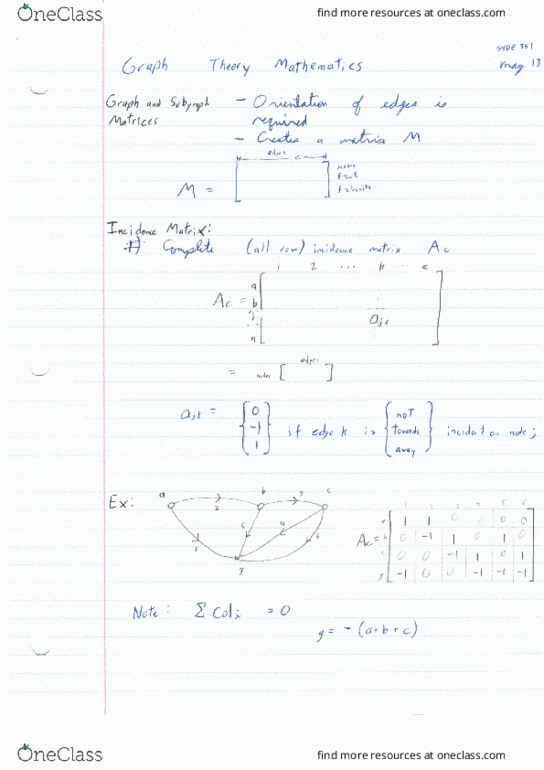 OneClass find more resources at oneclass.com
SYDE 351
Graph Theory Mathematics May 13
Graph and Subgraph - Orientation of edges is
Matrices required
- Creates a matrix M
edges
e
M =
Incidence Matrix:
1) Complete (all row) incidence matrix Ac
1 2 ... k ... e
a
Ac = b
j ajk
n
= nodes [ edges ]
ajk = { 0 -1 1 } if edge k is { not towards away } incident on node j
Ex: a b c
2 7
5 4 6
1
g
a 1 1 0 0 0 0
Ac = b 0 -1 1 0 1 0
c 0 0 -1 1 0 1
g -1 0 0 -1 -1 -1
Note: Σ Coli = 0
g = - (a+b+c)
OneClass find more resources at oneclass.com